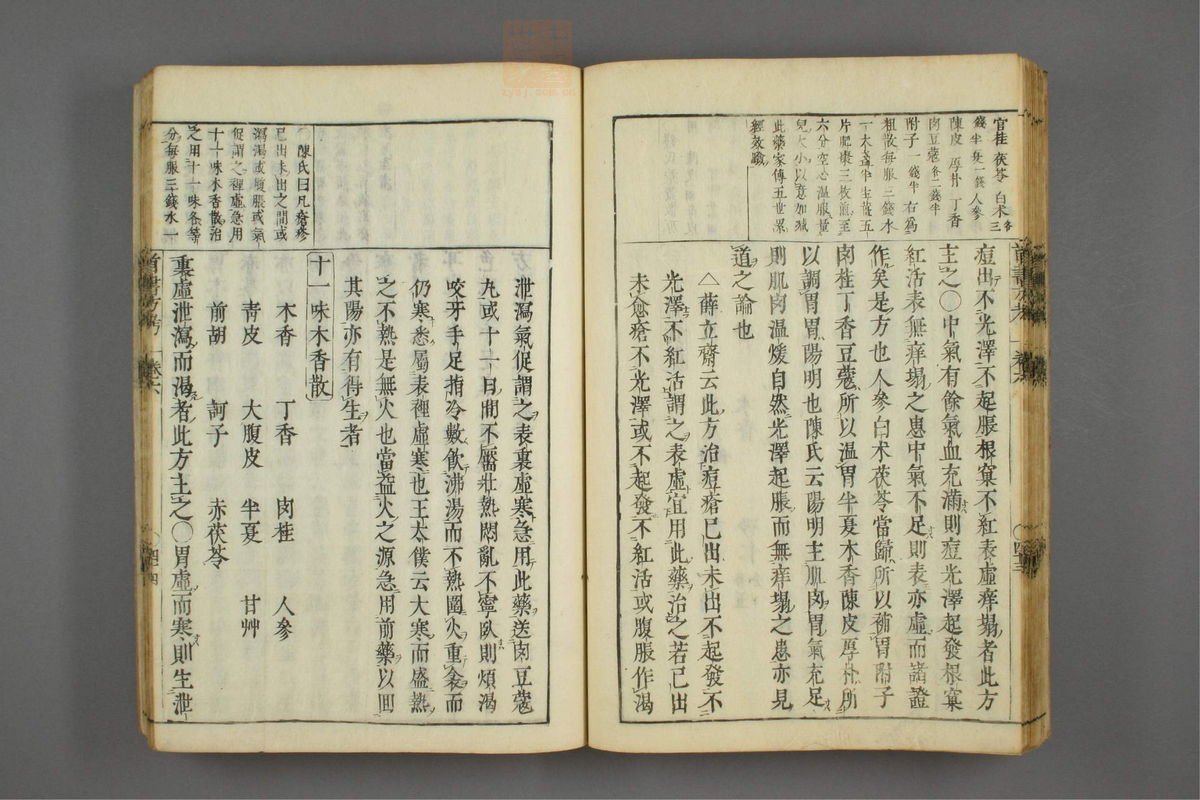 官桂 茯苓 白朮各三
錢半每一錢人參
陳皮 厚朴 丁香
肉豆蔻各一錢半
附子一錢半右爲
粗散每服三錢水
一大盞半生薑五
片肥棗三枚煎至
六分空心溫服量
兒大小以意加減
此藥家傳五世累
經效驗
痘出不光澤不起脹根窠不紅表虛痒塌者此方
主之○中氣有餘氣血充滿則痘光澤起發根窠
紅活表無痒塌之患中氣不足則表亦虛而諸證
作矣是方也人參白朮茯苓當歸所以補胃附子
肉桂丁香豆蔻所以溫胃半夏木香陳皮厚朴所
以調胃胃陽明也陳氏云陽明主肌肉胃氣充足
則肌肉溫煖自然光澤起脹而無痒塌之患亦見
道之論也
△薛立齋云此方治痘瘡已出未出不起發不
光澤不紅活謂之表虛宜用此藥治之若已出
未愈瘡不光澤或不起發不紅活或腹脹作渴
泄瀉氣促謂之表裏虛寒急用此藥送肉豆蔻
丸或十一日間不靨壯熱悶亂不寧臥則煩渴
咬牙手足指冷數飲沸湯而不熱圍火重衾而
仍寒悉屬表裡虛寒也王太僕云大寒而盛熱
之不熱是無火也當益火之源急用前藥以囬
其陽亦有得生者
○陳氏曰凡瘡疹
已出未出之間或
瀉渴或腹脹或氣
促謂之裡虛急用
十一味木香散治
之用十一味各等
分每服三錢水一
十一味木香散
木香 丁香 肉桂 人參
靑皮 大腹皮 半夏 甘艸
前胡 訶子 赤茯苓
裏虛泄瀉而渴者此方主之○胃虛而寒則生泄